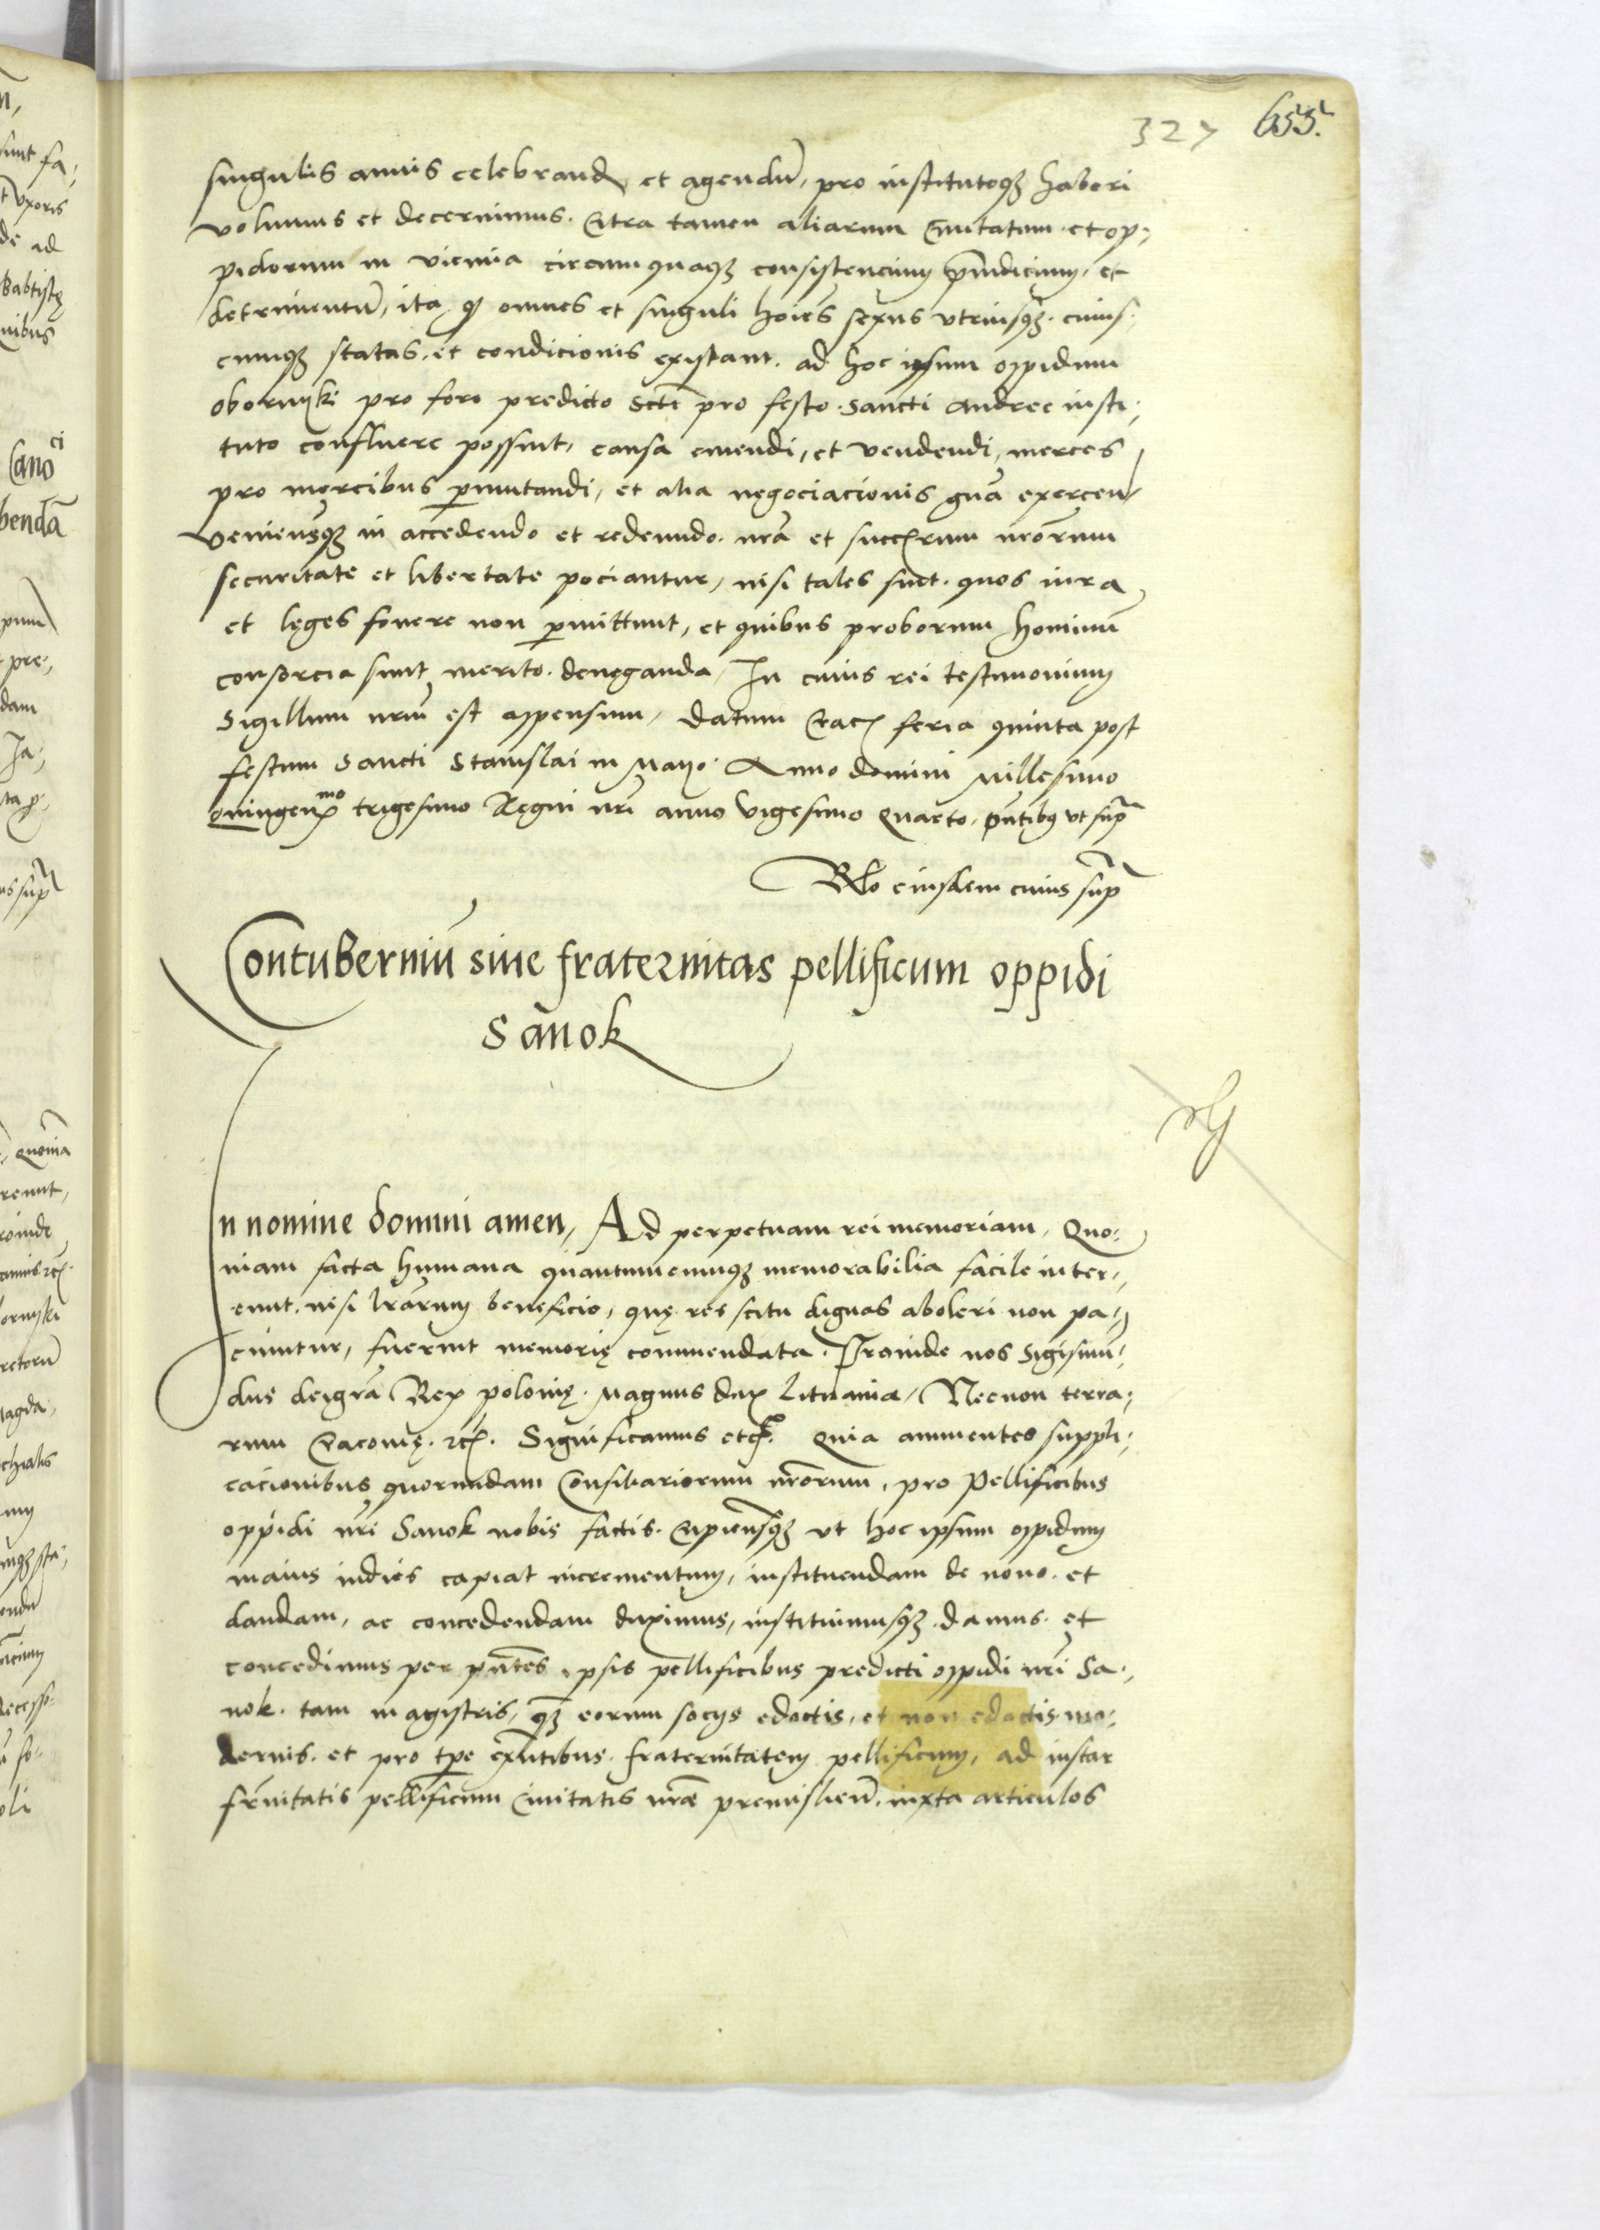 327 655.
singulis annis celebrand et agendū, pro institutoqꝫ haberi
volumus et decernimus. Citra tamen aliarum Civitatum et op-
pidorum in vicinia circumquaqꝫ consistencium p̄iudicium, et
detrimentū, ita qꝫ omnes et singuli hoīes sexus utriusqꝫ. cuius-
cumqꝫ status. et condicionis existant. ad hoc ipsum oppidum
oborniki pro foro predicto Sctī pro festo Sancti Andree insti-
tuto confluere possint, causa emendi, et vendendi, merces
pro mercibus ꝑmutandi, et alia negociacionis grā exercen
venientesqꝫ in accedendo et redeundo. nrā et succꝝum nrōrum
securitate et libertate pociantur, nisi tales sint. quos iura
et lęges fovere non ꝑmittunt, et quibus proborum hominum̄
consorcia sunt merito. deneganda, In cuius rei testimonium
Sigillum nrm̄ est appensum, Datum Crac feria quinta post
festum Sancti Stanislai in Mayo. Anno domini Millesimo
quingenmo trigesimo Regni nrī anno vigesimo Quarto, p̄ntibꝰ ut sup̄
Rlo eiusdem cuius sup̄
Contuberniū sive fraternitas pellificum oppidi
Sanok
In nomine domini amen, Ad perpetuam rei memoriam, Quo-
niam facta humana quantumcumqꝫ memorabilia facile inter-
eunt. nisi lrārum beneficio, quę res scitu dignas aboleri non pa-
ciuntur, fuerint memorię commendata. Proinde nos Sigismun̄-
dus deigrā Rex polonię. Magnus dux Lituania, Necnon terra-
rum Cracovię. etc. Significamus etc. Quia annuentes suppli-
cacionibus quorundam Consiliariorum nrōrum, pro Pellificibus
oppidi nrī Sanok nobis factis. Cupientesqꝫ ut hoc ipsum oppidum
maius indies capiat incrementum, instituendam de novo. et
dandam, ac concedendam duximus, instituimusqꝫ. damus. et
concedimus per p̄ntes ipsis pellificibus predicti oppidi nrī Sa-
nok. tam magistris, qꝫ eorum socys edoctis, et non edoctis mo-
dernis. et pro tp̄e exn̄tibus. fraternitatem pellificum, ad instar
frnītatis pellificum Civitatis nrāe premislien̄. iuxta articulos